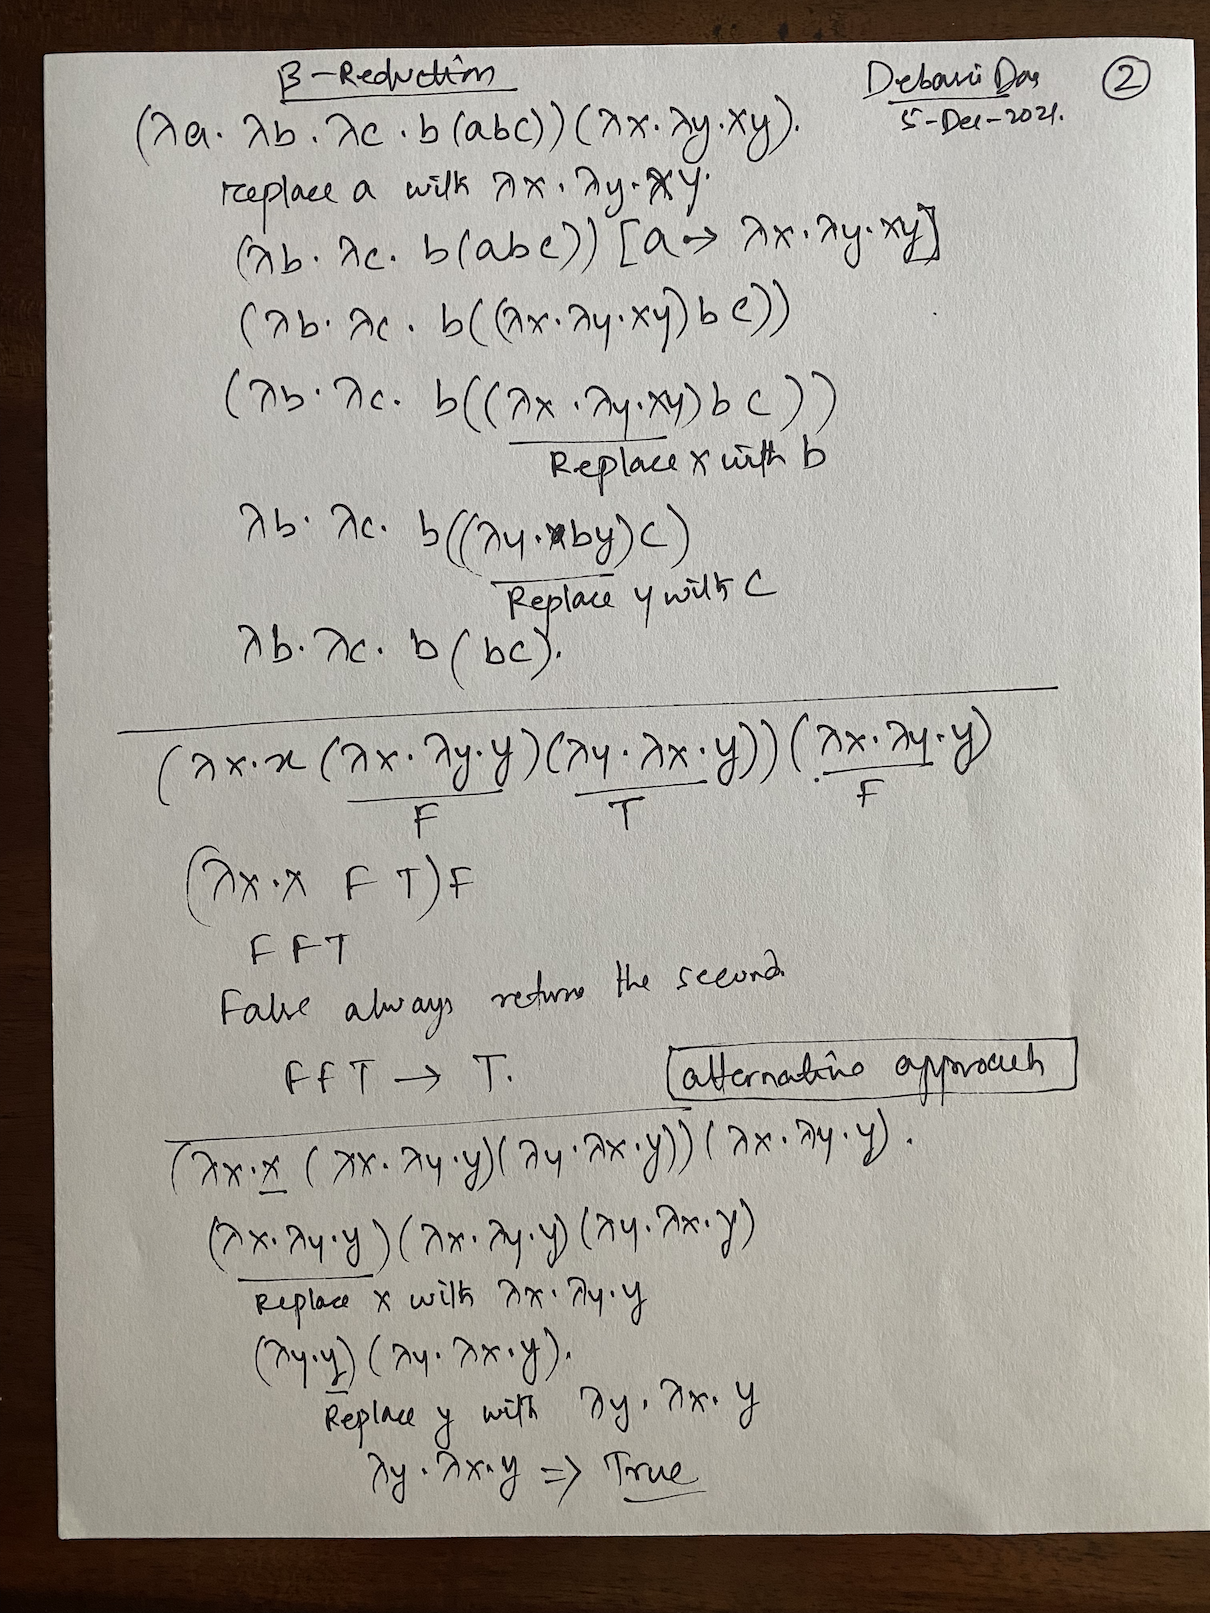 β-Reduction
Debasis Das
②
5-Dec-2021.
(λa. λb. λc. b(abc)) (λx. λy. xy).
replace a with λx. λy. xy.
(λb. λc. b(abc)) [a → λx. λy. xy]
(λb. λc. b((λx. λy. xy) b c))
(λb. λc. b((λx. λy. xy) b c))
Replace x with b
λb. λc. b((λy. by) c)
Replace y with c
λb. λc. b(bc).
(λx. x (λx. λy. y) (λy. λx. y)) (λx. λy. y)
F T F
(λx. x F T) F
F F T
False always returns the second.
F F T → T.
alternative approach
(λx. x (λx. λy. y) (λy. λx. y)) (λx. λy. y).
(λx. λy. y) (λx. λy. y) (λy. λx. y)
Replace x with λx. λy. y
(λy. y) (λy. λx. y).
Replace y with λy. λx. y
λy. λx. y => True